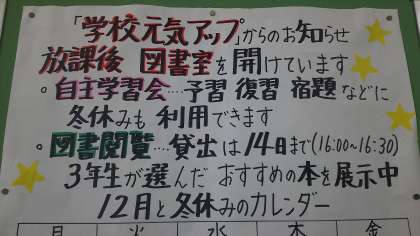 「学校元気アップ」からのお知らせ
放課後 図書室を開けています
。自主学習会…予習 復習 宿題などに
冬休みも利用できます
。図書閲覧…貸出は14日まで(16:00~16:30)
3年生が選んだ おすすめの本を展示中
12月と冬休みのカレンダー
月 火 水 木 金